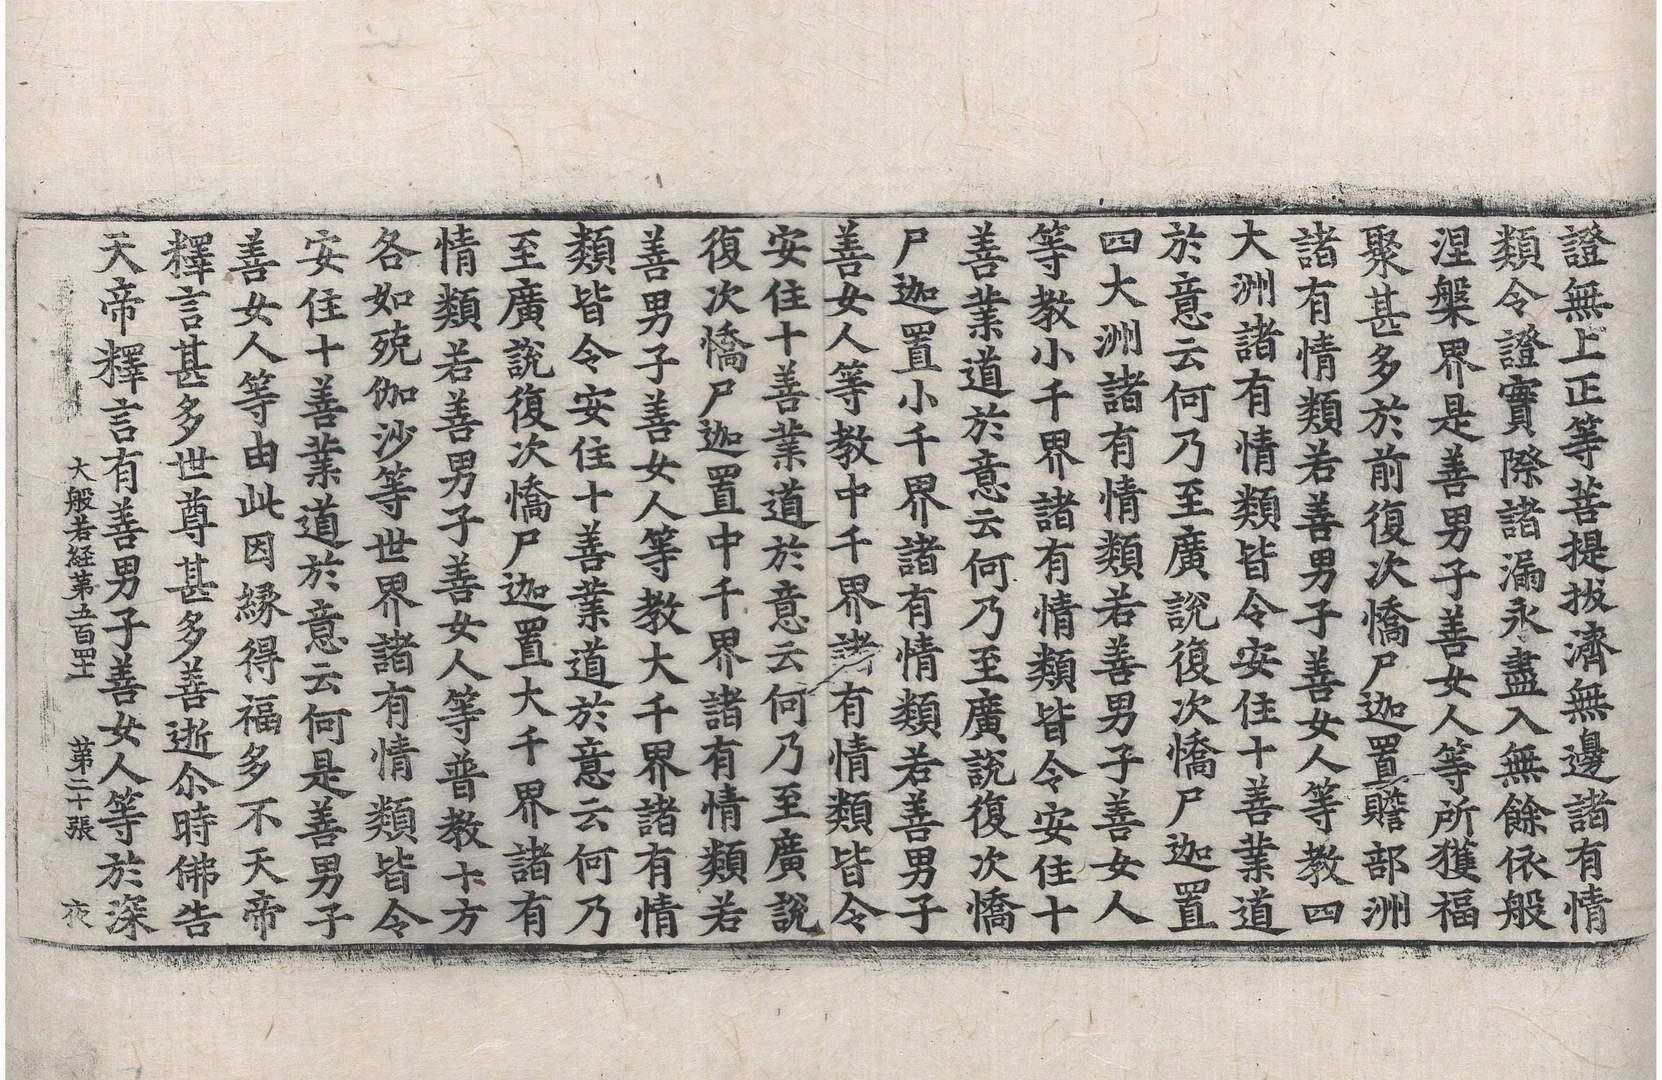 證無上正等菩提拔濟無邊諸有情
類令證實際諸漏永盡入無餘依般
涅槃界是善男子善女人等所獲福
聚甚多於前復次憍尸迦置贍部洲
諸有情類若善男子善女人等教四
大洲諸有情類皆令安住十善業道
於意云何乃至廣說復次憍尸迦置
四大洲諸有情類若善男子善女人
等教小千界諸有情類皆令安住十
善業道於意云何乃至廣說復次憍
尸迦置小千界諸有情類若善男子
善女人等教中千界諸有情類皆令
安住十善業道於意云何乃至廣說
復次憍尸迦置中千界諸有情類若
善男子善女人等教大千界諸有情
類皆令安住十善業道於意云何乃
至廣說復次憍尸迦置大千界諸有
情類若善男子善女人等普教十方
各如殑伽沙等世界諸有情類皆令
安住十善業道於意云何是善男子
善女人等由此因緣得福多不天帝
釋言甚多世尊甚多善逝尒時佛告
天帝釋言有善男子善女人等於深
大般若經第五百四十 第二十張 夜